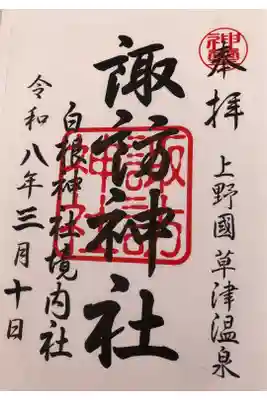 奉拝
上野國草津温泉
諏訪神社
諏訪神社
白根神社境内社
令和八年三月十日